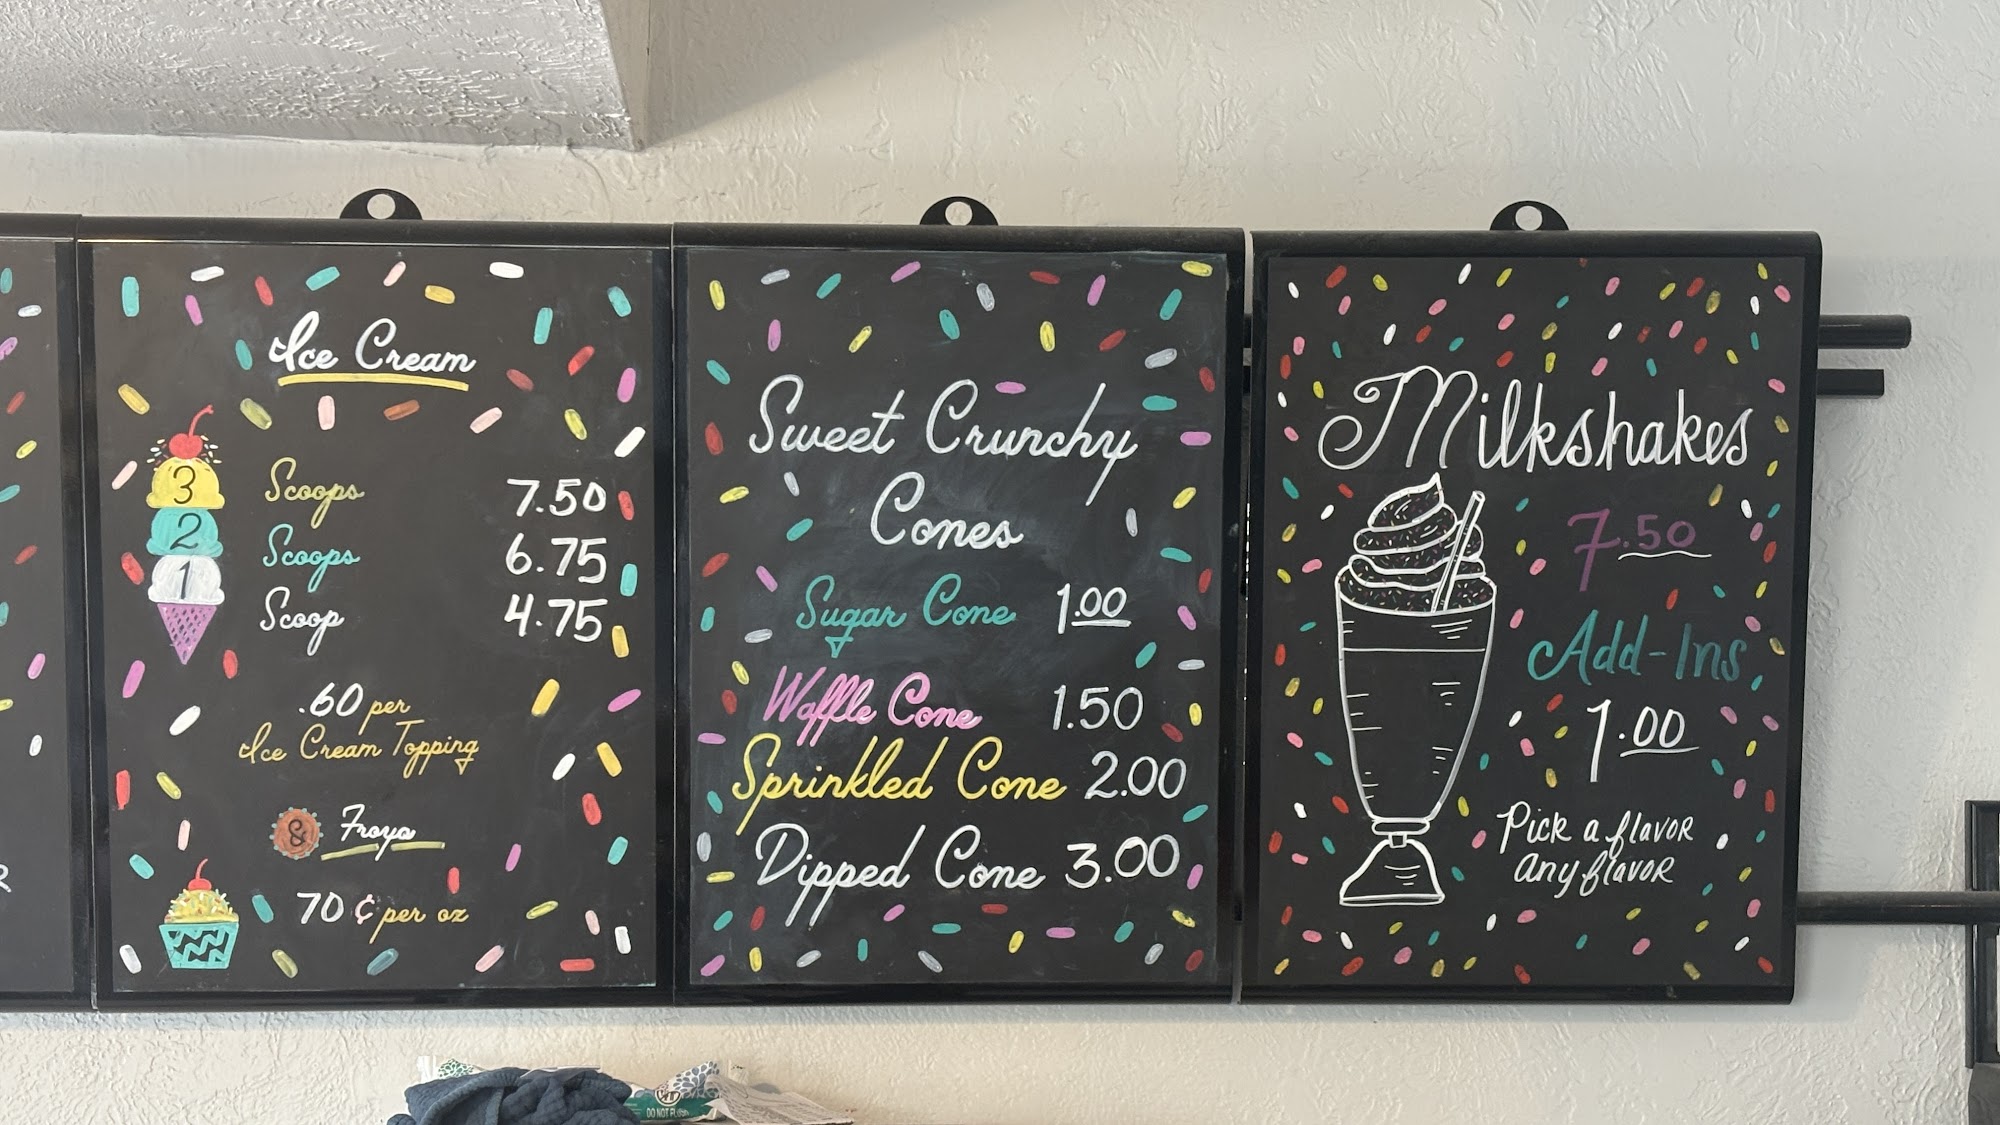 Ice Cream
3 Scoops 7.50
2 Scoops 6.75
1 Scoop 4.75
.60 per
Ice Cream Topping
& Froyo
70 ¢ per oz
Sweet Crunchy
Cones
Sugar Cone 1.00
Waffle Cone 1.50
Sprinkled Cone 2.00
Dipped Cone 3.00
Milkshakes
7.50
Add-Ins
1.00
Pick a flavor
any flavor
DO NOT FLUSH